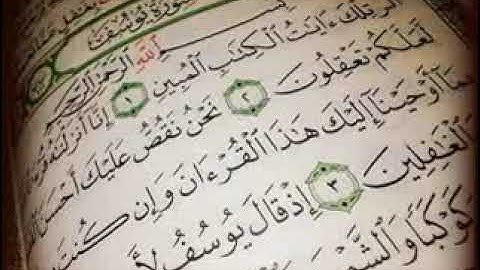 سورة يوسف
بسم الله الرحمن الرحيم
الٓر تِلْكَ ءَايَٰتُ ٱلْكِتَٰبِ ٱلْمُبِينِ ١ إِنَّآ أَنزَلْنَٰهُ
لَّعَلَّكُمْ تَعْقِلُونَ ٢ نَحْنُ نَقُصُّ عَلَيْكَ أَحْسَنَ
بِمَآ أَوْحَيْنَآ إِلَيْكَ هَٰذَا ٱلْقُرْءَانَ وَإِن كُنتَ
ٱلْغَٰفِلِينَ ٣ إِذْ قَالَ يُوسُفُ
كَوْكَبًا وَٱلشَّمْسَ